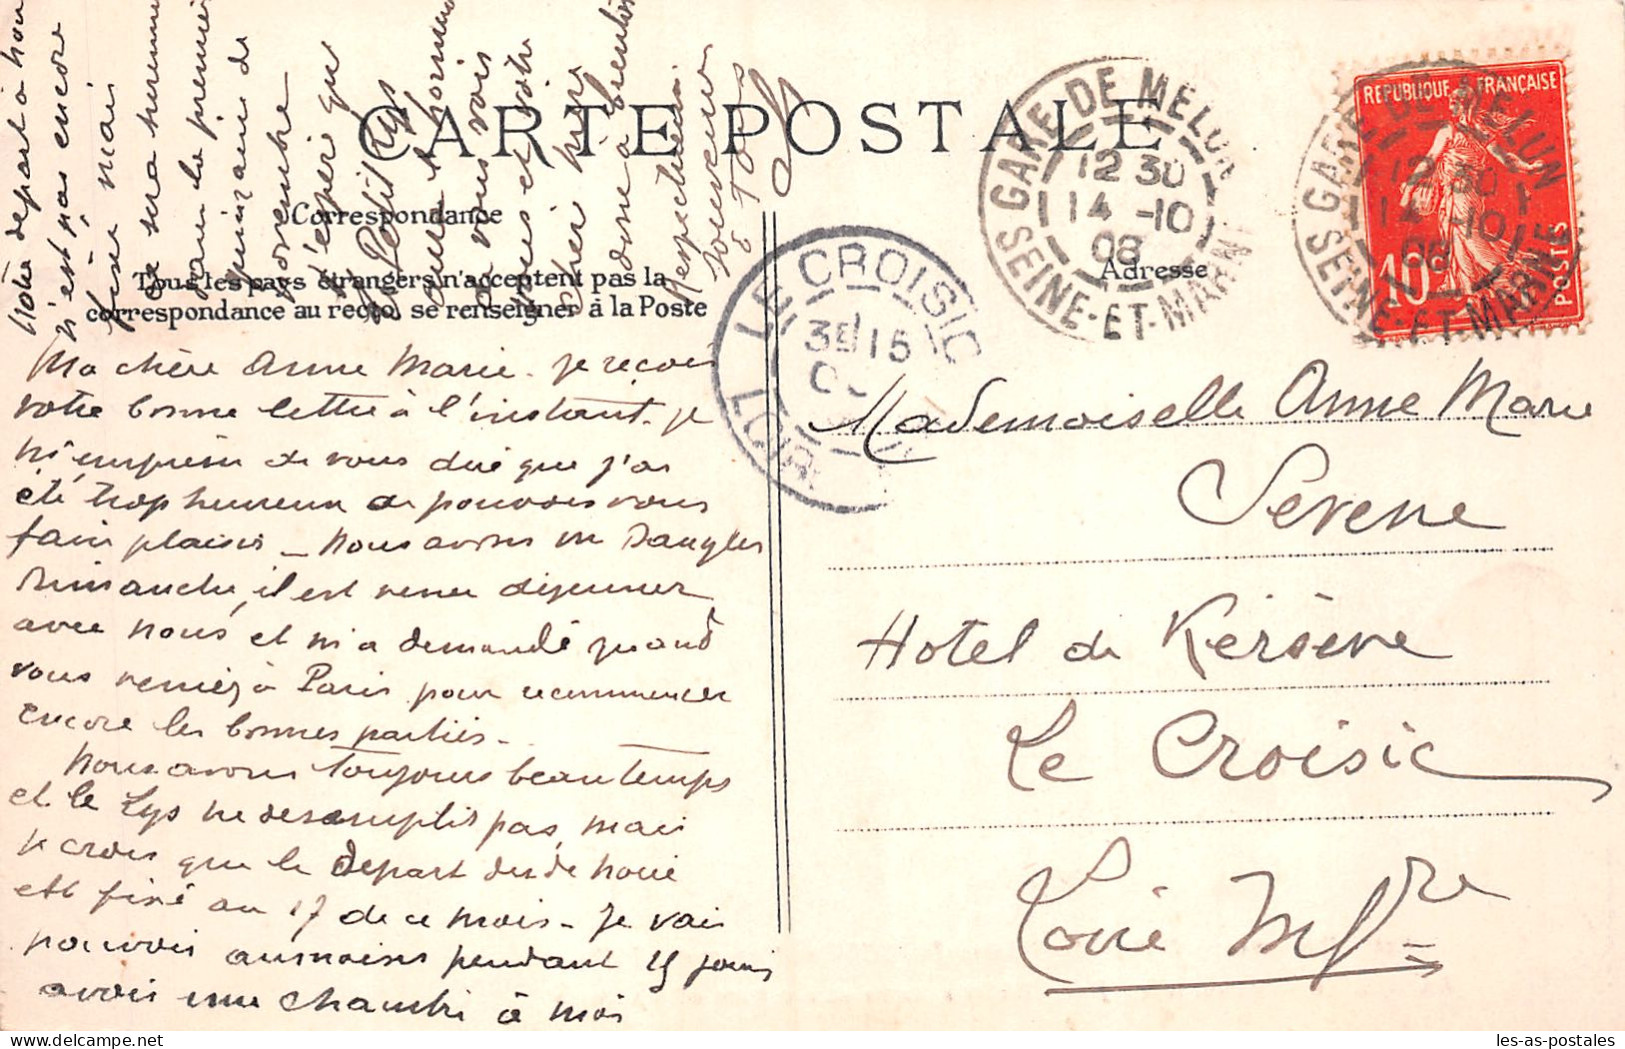 CARTE POSTALE
Correspondance
Tous les pays étrangers n'acceptent pas la
correspondance au recto, se renseigner à la Poste
Adresse
REPUBLIQUE FRANÇAISE
10
POSTES
GARE DE MELUN
12 30
14 -10
08
SEINE-ET-MARNE
GARE DE MELUN
12 30
14 -10
08
SEINE-ET-MARNE
LE CROISIC
3E 15
LOIR
Mademoiselle Anne Marie
Serene
Hotel de Kersène
Le Croisic
Loire Infre
Ma chère Anne Marie. Je reçois
votre bonne lettre à l'instant. je
m'empresse de vous dire que j'ai
été trop heureux de pouvoir vous
faire plaisir _ Nous avons vu
Dimanche, il est venu dejeuner
avec nous et m'a demandé quand
vous veniez à Paris pour recommencer
encore les bonnes parties _
Nous avons toujours beau temps
et le Lys ne desemplit pas, mais
je crois que le depart de
est fixé au 17 de ce mois _ Je vais
pouvoir au moins pendant 15 jours
avoir une chambre à moi
Notre depart à nous
n'est pas encore
fixé mais
ce sera
dans la première
quinzaine de
novembre
J'espère que
le Petit Lys
vous vois
chère
donne à
Respectueux
souvenir
à Tous